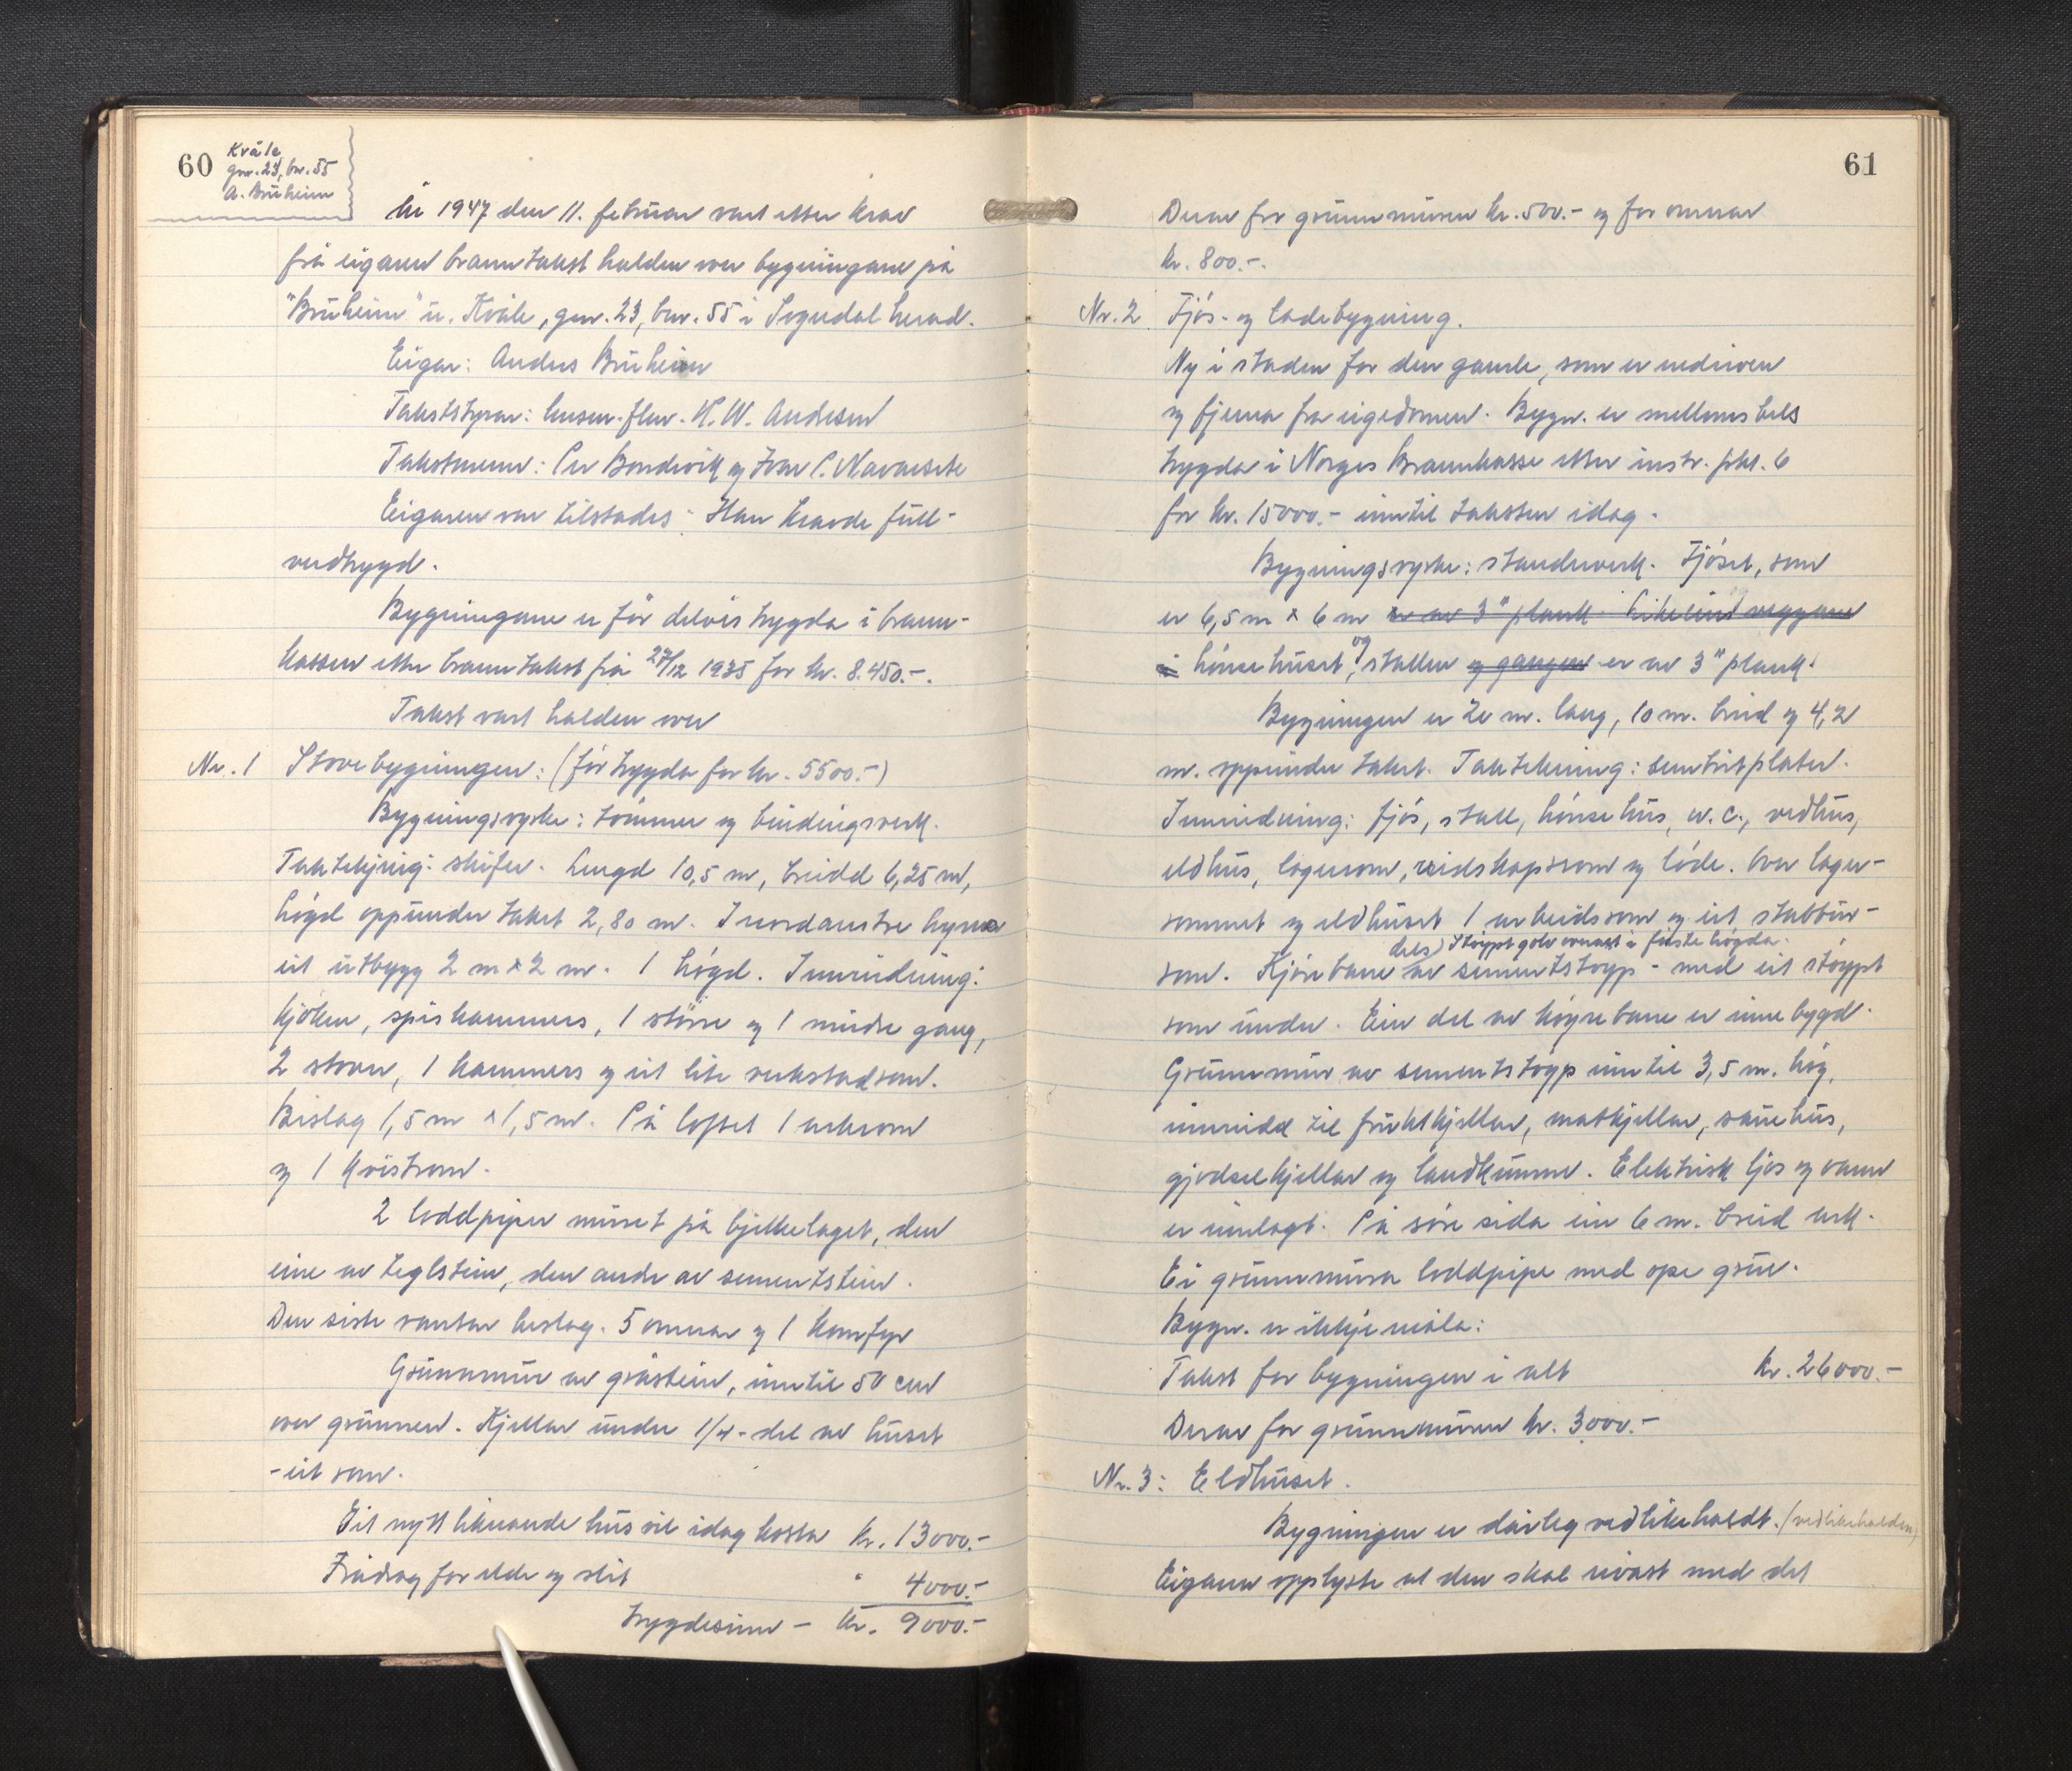 60
Kvåle
gnr. 23, bnr. 55
A. Bruheim
År 1947 den 11. februar vart etter krav
frå eigaren branntakst halden over bygningane på
"Bruheim" u. Kvåle, gnr. 23, bnr. 55 i Sogndal herad.
Eigar: Anders Bruheim
Takststyrar: lensm. flm. H. W. Andresen
Takstmenn: Per Bondevik og Ivar P. Navarsete
Eigaren var tilstades. Han kravde full-
verdtrygd.
Bygningane er før delvis trygda i brann-
kassen etter branntakst frå 27/12 1935 for kr. 8.450.-.
Takst vart halden over
Nr. 1 Stovebygningen: (før trygda for kr. 5500.-)
Bygningsvyrke: tømmer og bindingsverk.
Taktekjing: skifer. Lengd 10,5 m, breidd 6,25 m,
høgd oppunder taket 2,80 m. I nordaustre hyrna
eit utbygg 2 m x 2 m. 1 høgd. Innreidning:
kjøken, spiskammers, 1 større og 1 mindre gang,
2 stover, 1 kammers og eit lite verkstadrom.
Bislag 1,5 m x 1,5 m. På loftet 1 arkrom
og 1 kvistrom.
2 loddpiper muret på bjelkelaget, den
eine av teglstein, den andre av sementstein.
Den siste vantar beslag. 5 omnar og 1 komfyr
Grunnmur av gråstein, inntil 50 cm
over grunnen. Kjellar under 1/4-del av huset
- eit rom.
Eit nytt liknande hus vil idag kosta kr. 13000.-
Frådrag for elde og slit " 4000.-
trygdesum - kr. 9000.-
61
Derav for grunnmuren kr. 500.- og for omnar
kr. 800.-.
Nr. 2 Fjøs- og ladebygning.
Ny i staden for den gamle, som er nedriven
og fjerna fra eigedomen. Bygn. er mellombels
trygda i Norges Brannkasse etter instr. pkt. 6
for kr. 15000.- inntil taksten idag.
Bygningsvyrke: standerverk. Fjøset, som
er 6,5 m x 6 m er av 3" plank. Likeeins veggane
i hønsehuset, og stallen og gangen er av 3" plank.
Bygningen er 20 m. lang, 10 m. breid og 4,2
m. oppunder taket. Taktekning: sementitplater.
Innreidning: fjøs, stall, hønsehus, w.c., vedhus,
eldhus, lagerrom, reidskapsrom og løde. Over lager-
rommet og eldhuset 1 arbeidsrom og eit stabbur-
dels) Støypt golv overalt i fyrste høgda.
rom. Kjørebane av sementstøyp - med eit støypt
rom under. Ein del av køyrebane er innebygd.
Grunnmur av sementstøyp inntil 3,5 m. høg,
innreidd til fruktkjellar, matkjellar, sauehus,
gjødselkjellar og landkumme. Elektrisk ljos og vann
er innlagt. På søre sida ein 6 m. breid ark.
Ei grunnmura loddpipe med ope grue.
Bygn. er ikkje måla:
Takst for bygningen i alt kr. 26000.-
Derav for grunnmuren kr. 3000.-
Nr. 3: Eldhuset.
Bygningen er dårleg vedlikehaldt. (vedlikehalden)
Eigaren opplyste at den skal rivast med det